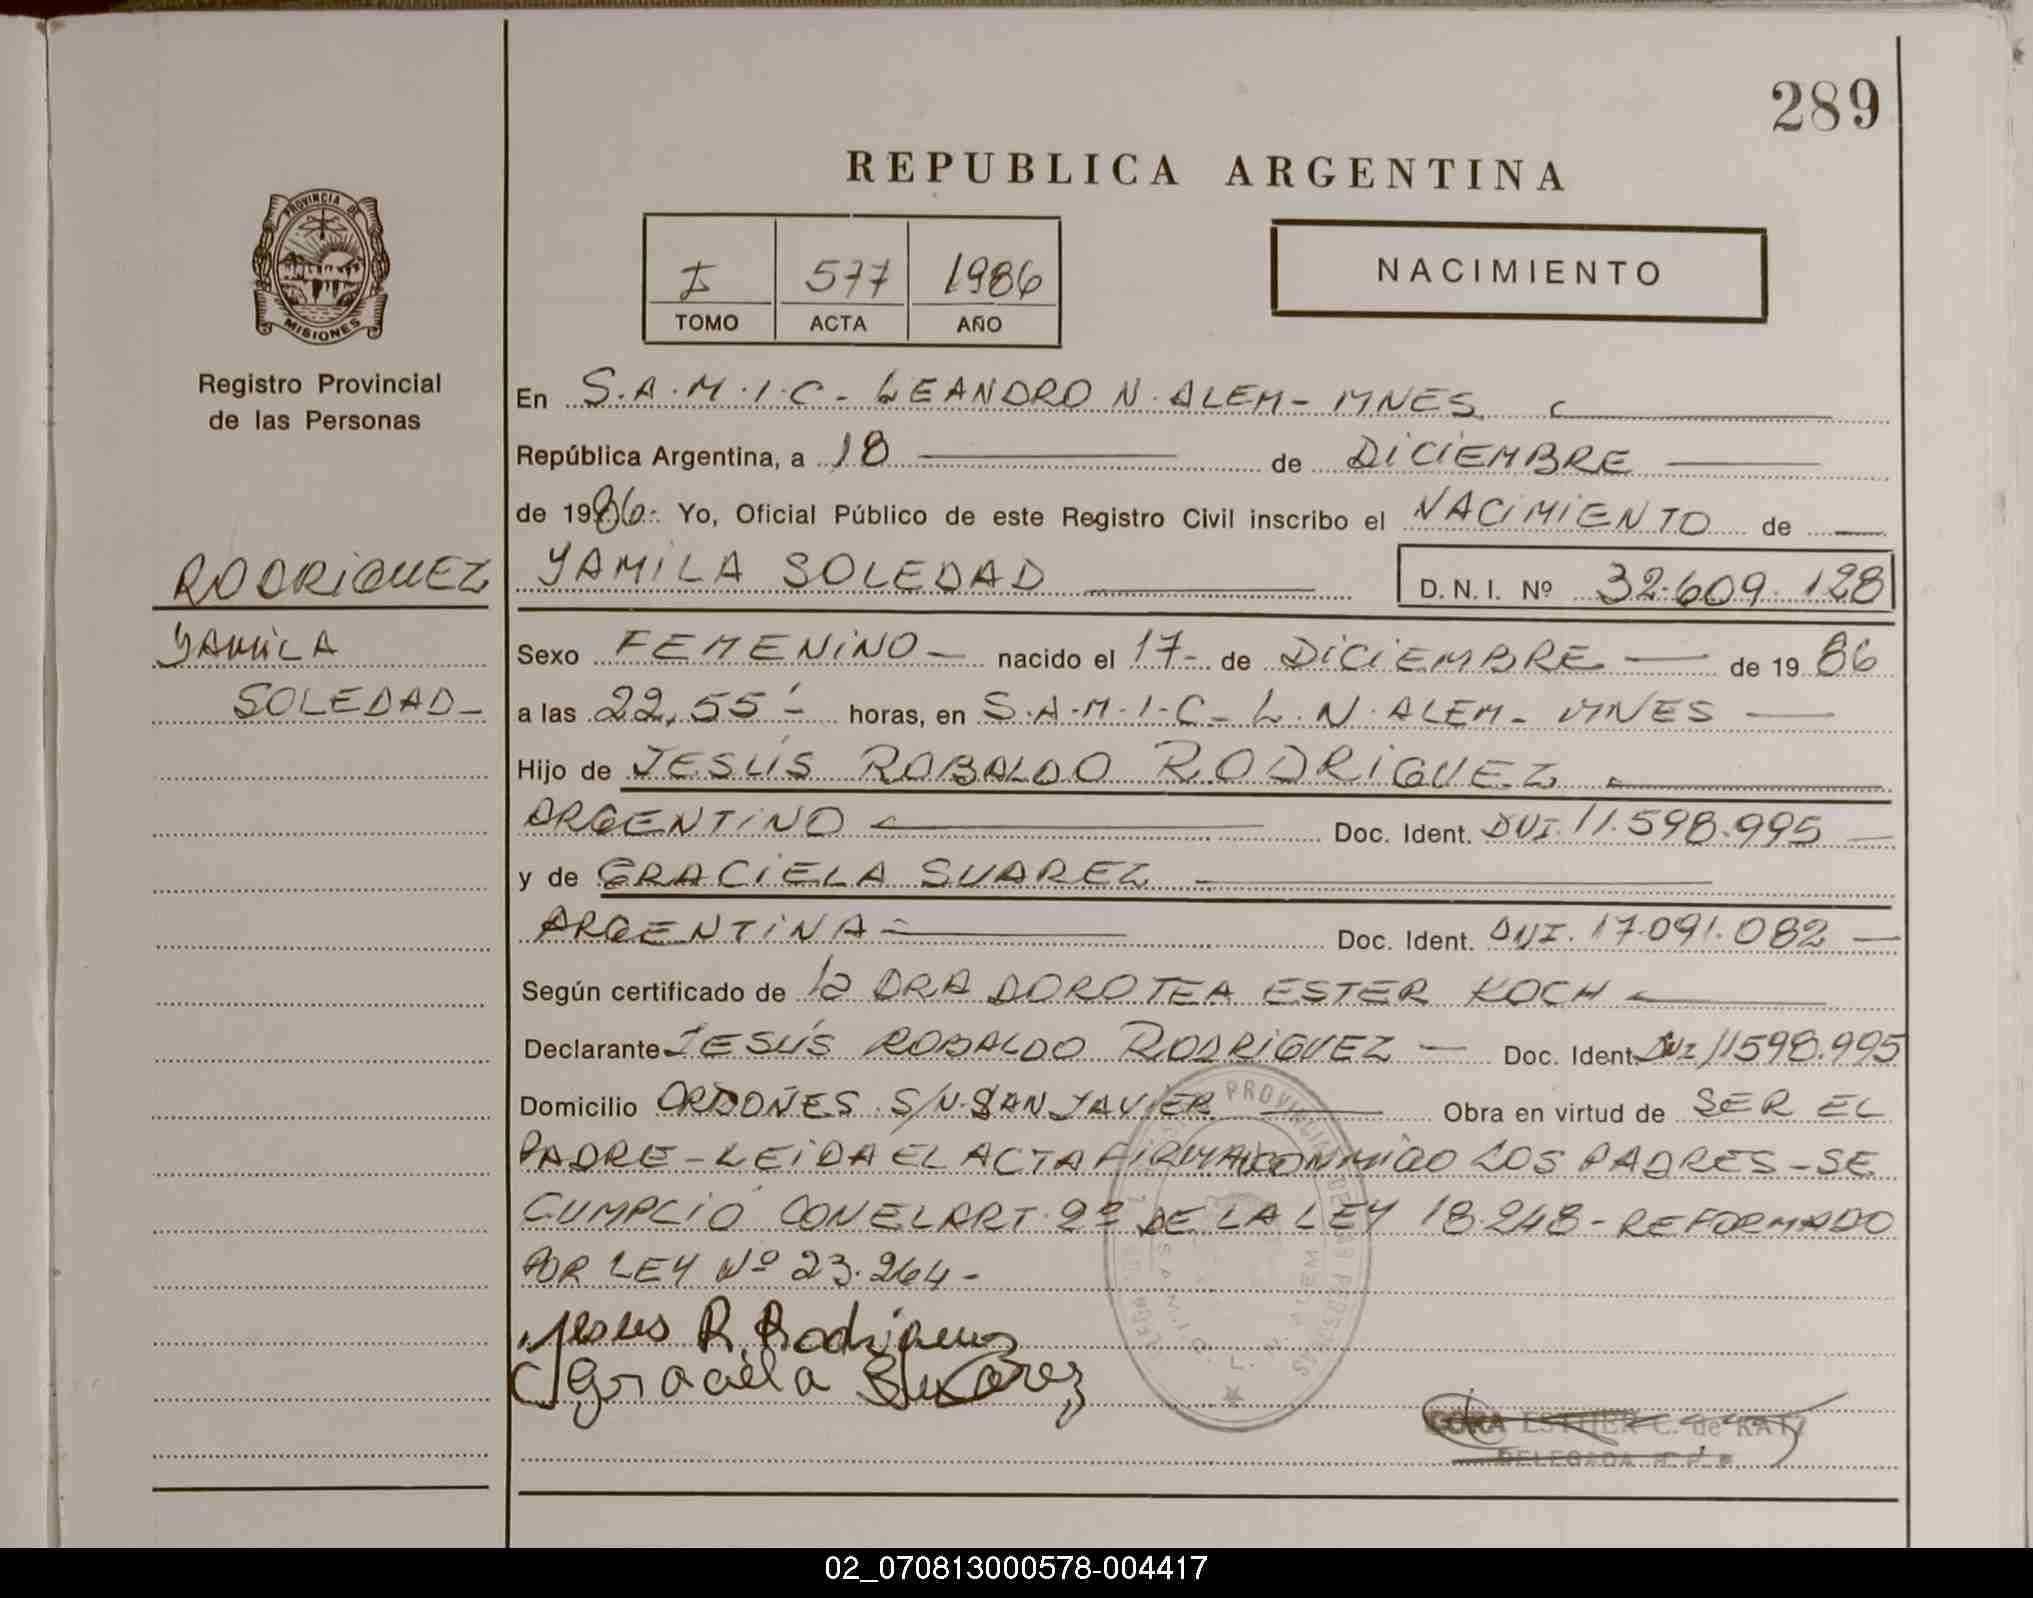 289
REPUBLICA ARGENTINA
PROVINCIA DE
MISIONES
Registro Provincial
de las Personas
I 577 1986
TOMO ACTA AÑO
NACIMIENTO
En S.A.M.I.C - LEANDRO N. ALEM - MNES
República Argentina, a 18 de DICIEMBRE
de 1986. Yo, Oficial Público de este Registro Civil inscribo el NACIMIENTO de
RODRIGUEZ
YAMILA SOLEDAD D.N.I. Nº 32.609.128
YAMILA
SOLEDAD
Sexo FEMENINO - nacido el 17 - de DICIEMBRE de 1986
a las 22,55 horas, en S.A.M.I.C - L.N. ALEM - MNES
Hijo de JESÚS ROBALDO RODRIGUEZ
ARGENTINO Doc. Ident. DNI. 11.598.995
y de GRACIELA SUAREZ
ARGENTINA Doc. Ident. DNI. 17.091.082
Según certificado de la DRA DOROTEA ESTER KOCH
Declarante JESÚS ROBALDO RODRIGUEZ - Doc. Ident. DNI 11598.995
Domicilio ORDOÑES S/N. SAN JAVIER Obra en virtud de SER EL
PADRE - LEIDA EL ACTA FIRMAN CONMIGO LOS PADRES - SE
CUMPLIÓ CON EL ART. 2º DE LA LEY 18.248 - REFORMADO
POR LEY Nº 23.264 -
Jesus R. Rodriguez
Graciela Suarez
ESTHER C. de KATZ
DELEGADA
02_070813000578-004417